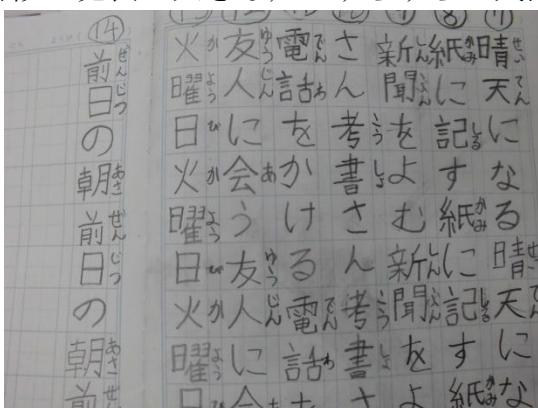 ⑦
晴天になる晴天にな
⑧
紙に記す紙に記す紙
新聞をよむ新聞をよ
さん考書さん考書さ
電話をかける電話を
友人に会う友人に会
火曜日火曜日火曜日
⑭
前日の朝前日の朝前